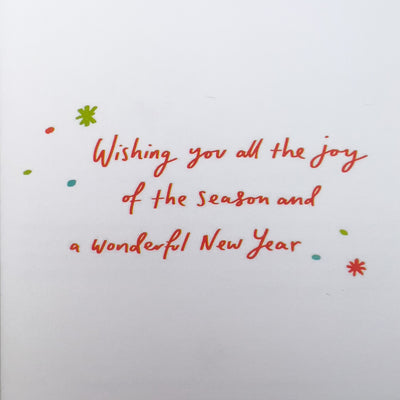 Wishing you all the joy
of the season and
a wonderful New Year